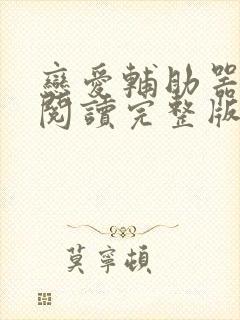 戀愛輔助器
閱讀完整版
莫寧頓